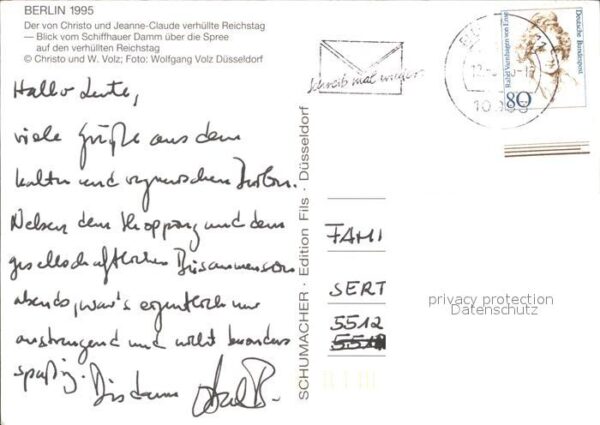 BERLIN 1995
Der von Christo und Jeanne-Claude verhüllte Reichstag
— Blick vom Schiffhauer Damm über die Spree
auf den verhüllten Reichstag
© Christo und W. Volz; Foto: Wolfgang Volz Düsseldorf
Hallo Leute,
viele Grüße aus dem
kalten und Berlin.
Neben dem Shopping und dem
gesellschaftlichen Beisammensein
abends, war's eigentlich nur
anstrengend und nicht besonders
spaßig. Bis dann
SCHUMACHER · Edition Fils · Düsseldorf
Schreib mal wieder
Deutsche Bundespost
Rahel Varnhagen von Ense
80
FAMI
SERT
5512
privacy protection
Datenschutz